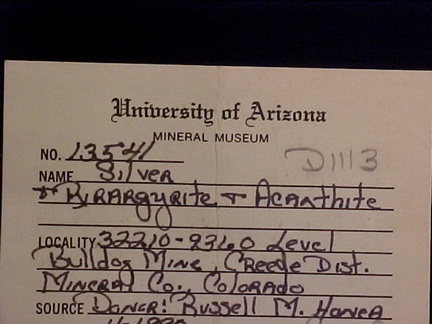 University of Arizona
MINERAL MUSEUM
NO. 13541
D1113
NAME Silver
& Pyrargyrite & Acanthite
LOCALITY 32210-9360 Level
Bulldog Mine, Creede Dist.
Mineral Co., Colorado
SOURCE Donor: Russell M. Honea